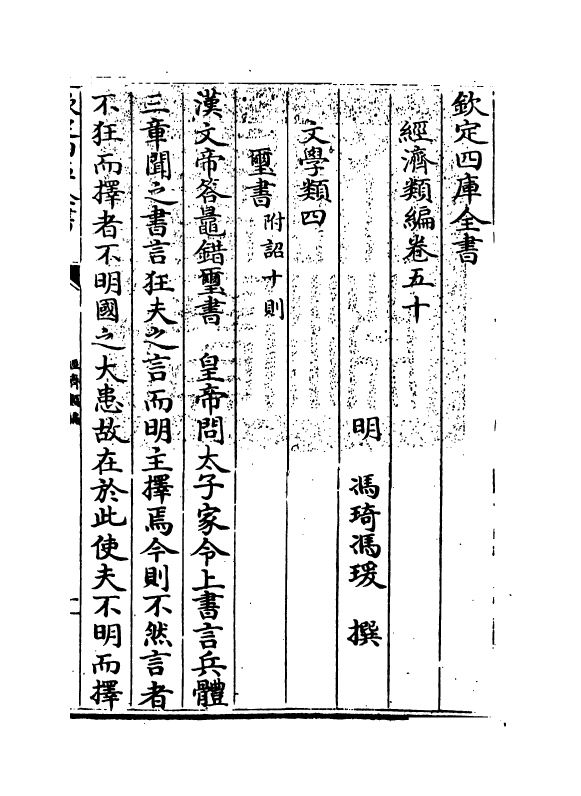 欽定四庫全書
經濟類編卷五十
明 馮琦馮瑗 撰
文學類四
璽書附詔十則
漢文帝答鼂錯璽書 皇帝問太子家令上書言兵體
三章聞之書言狂夫之言而明主擇焉今則不然言者
不狂而擇者不明國之大患故在於此使夫不明而擇
經濟類編
一